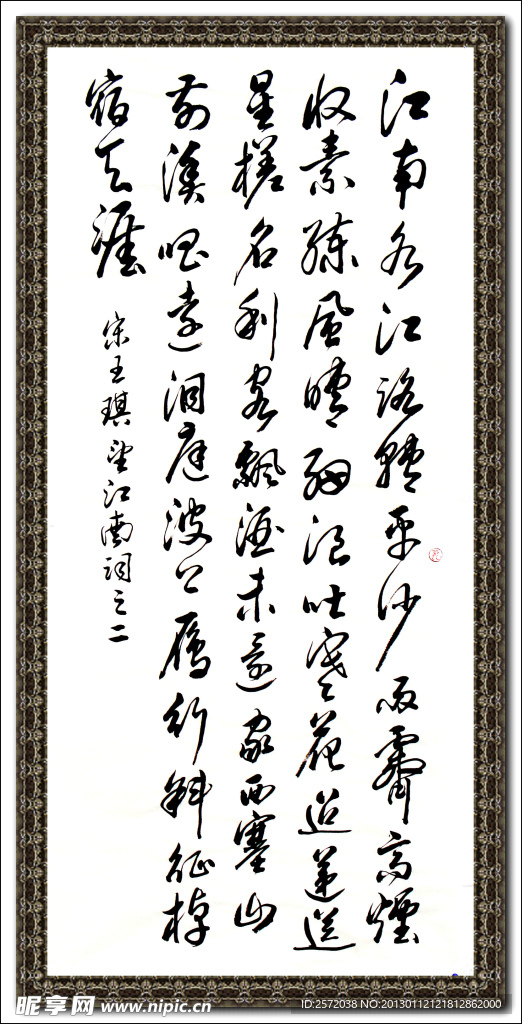 江南水江路轉平沙雨霽高煙
收素練風晴細浪吐寒花迢遞送
星槎名利客飄泊未還家西塞山
前漁唱遠洞庭波上雁行斜征棹
宿天涯
宋王琪望江南詞之二
昵享网 www.nipic.cn
ID:2572038 NO:20130112121812862000